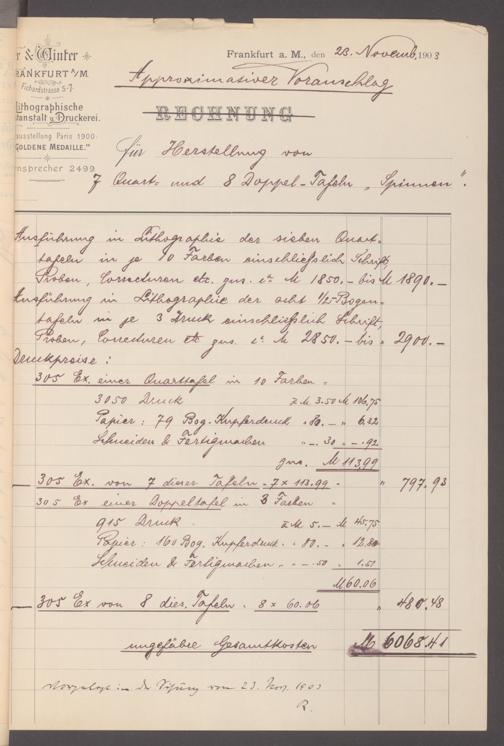 r & Winter
RANKFURT A/M.
Fichardstrasse 5-7.
Lithographische
stanstalt u. Druckerei.
ausstellung Paris 1900:
GOLDENE MEDAILLE."
rnsprecher 2499
Frankfurt a. M., den 23. Novemb. 1903
Approximativer Voranschlag
RECHNUNG
für Herstellung von
7 Quart- und 8 Doppel-Tafeln „Spinnen".
Ausführung in Lithographie der sieben Quart-
tafeln in je 10 Farben einschliesslich Schrift,
Proben, Correcturen etc. zus. ca. M 1850.- bis M 1890.-
Ausführung in Lithographie der acht 1/2-Bogen-
tafeln in je 3 Druck einschliesslich Schrift,
Proben, Correcturen etc zus. ca. M 2850.- bis " 2900.-
Druckpreise:
305 Ex. einer Quarttafel in 10 Farben =
3050 Druck z. M. 3.50 M 106,75
Papier: 79 Bog. Kupferdruck " 80.- " 6.32
Schneiden & Fertigmachen " -.30 " -.92
zus. M 113,99
305 Ex. von 7 dieser Tafeln = 7 x 113.99 " 797.93
305 Ex einer Doppeltafel in 3 Farben
915 Druck z M 5.- M 45,75
Papier: 160 Bog. Kupferdruck " 80.- " 12.80
Schneiden & Fertigmachen " -.50 " 1.51
M 60.06
305 Ex von 8 dies. Tafeln = 8 x 60.06 " 480.48
ungefähre Gesamtkosten M 6068.41
Vorgelegt in der Sitzung vom 23. Nov. 1903
R.